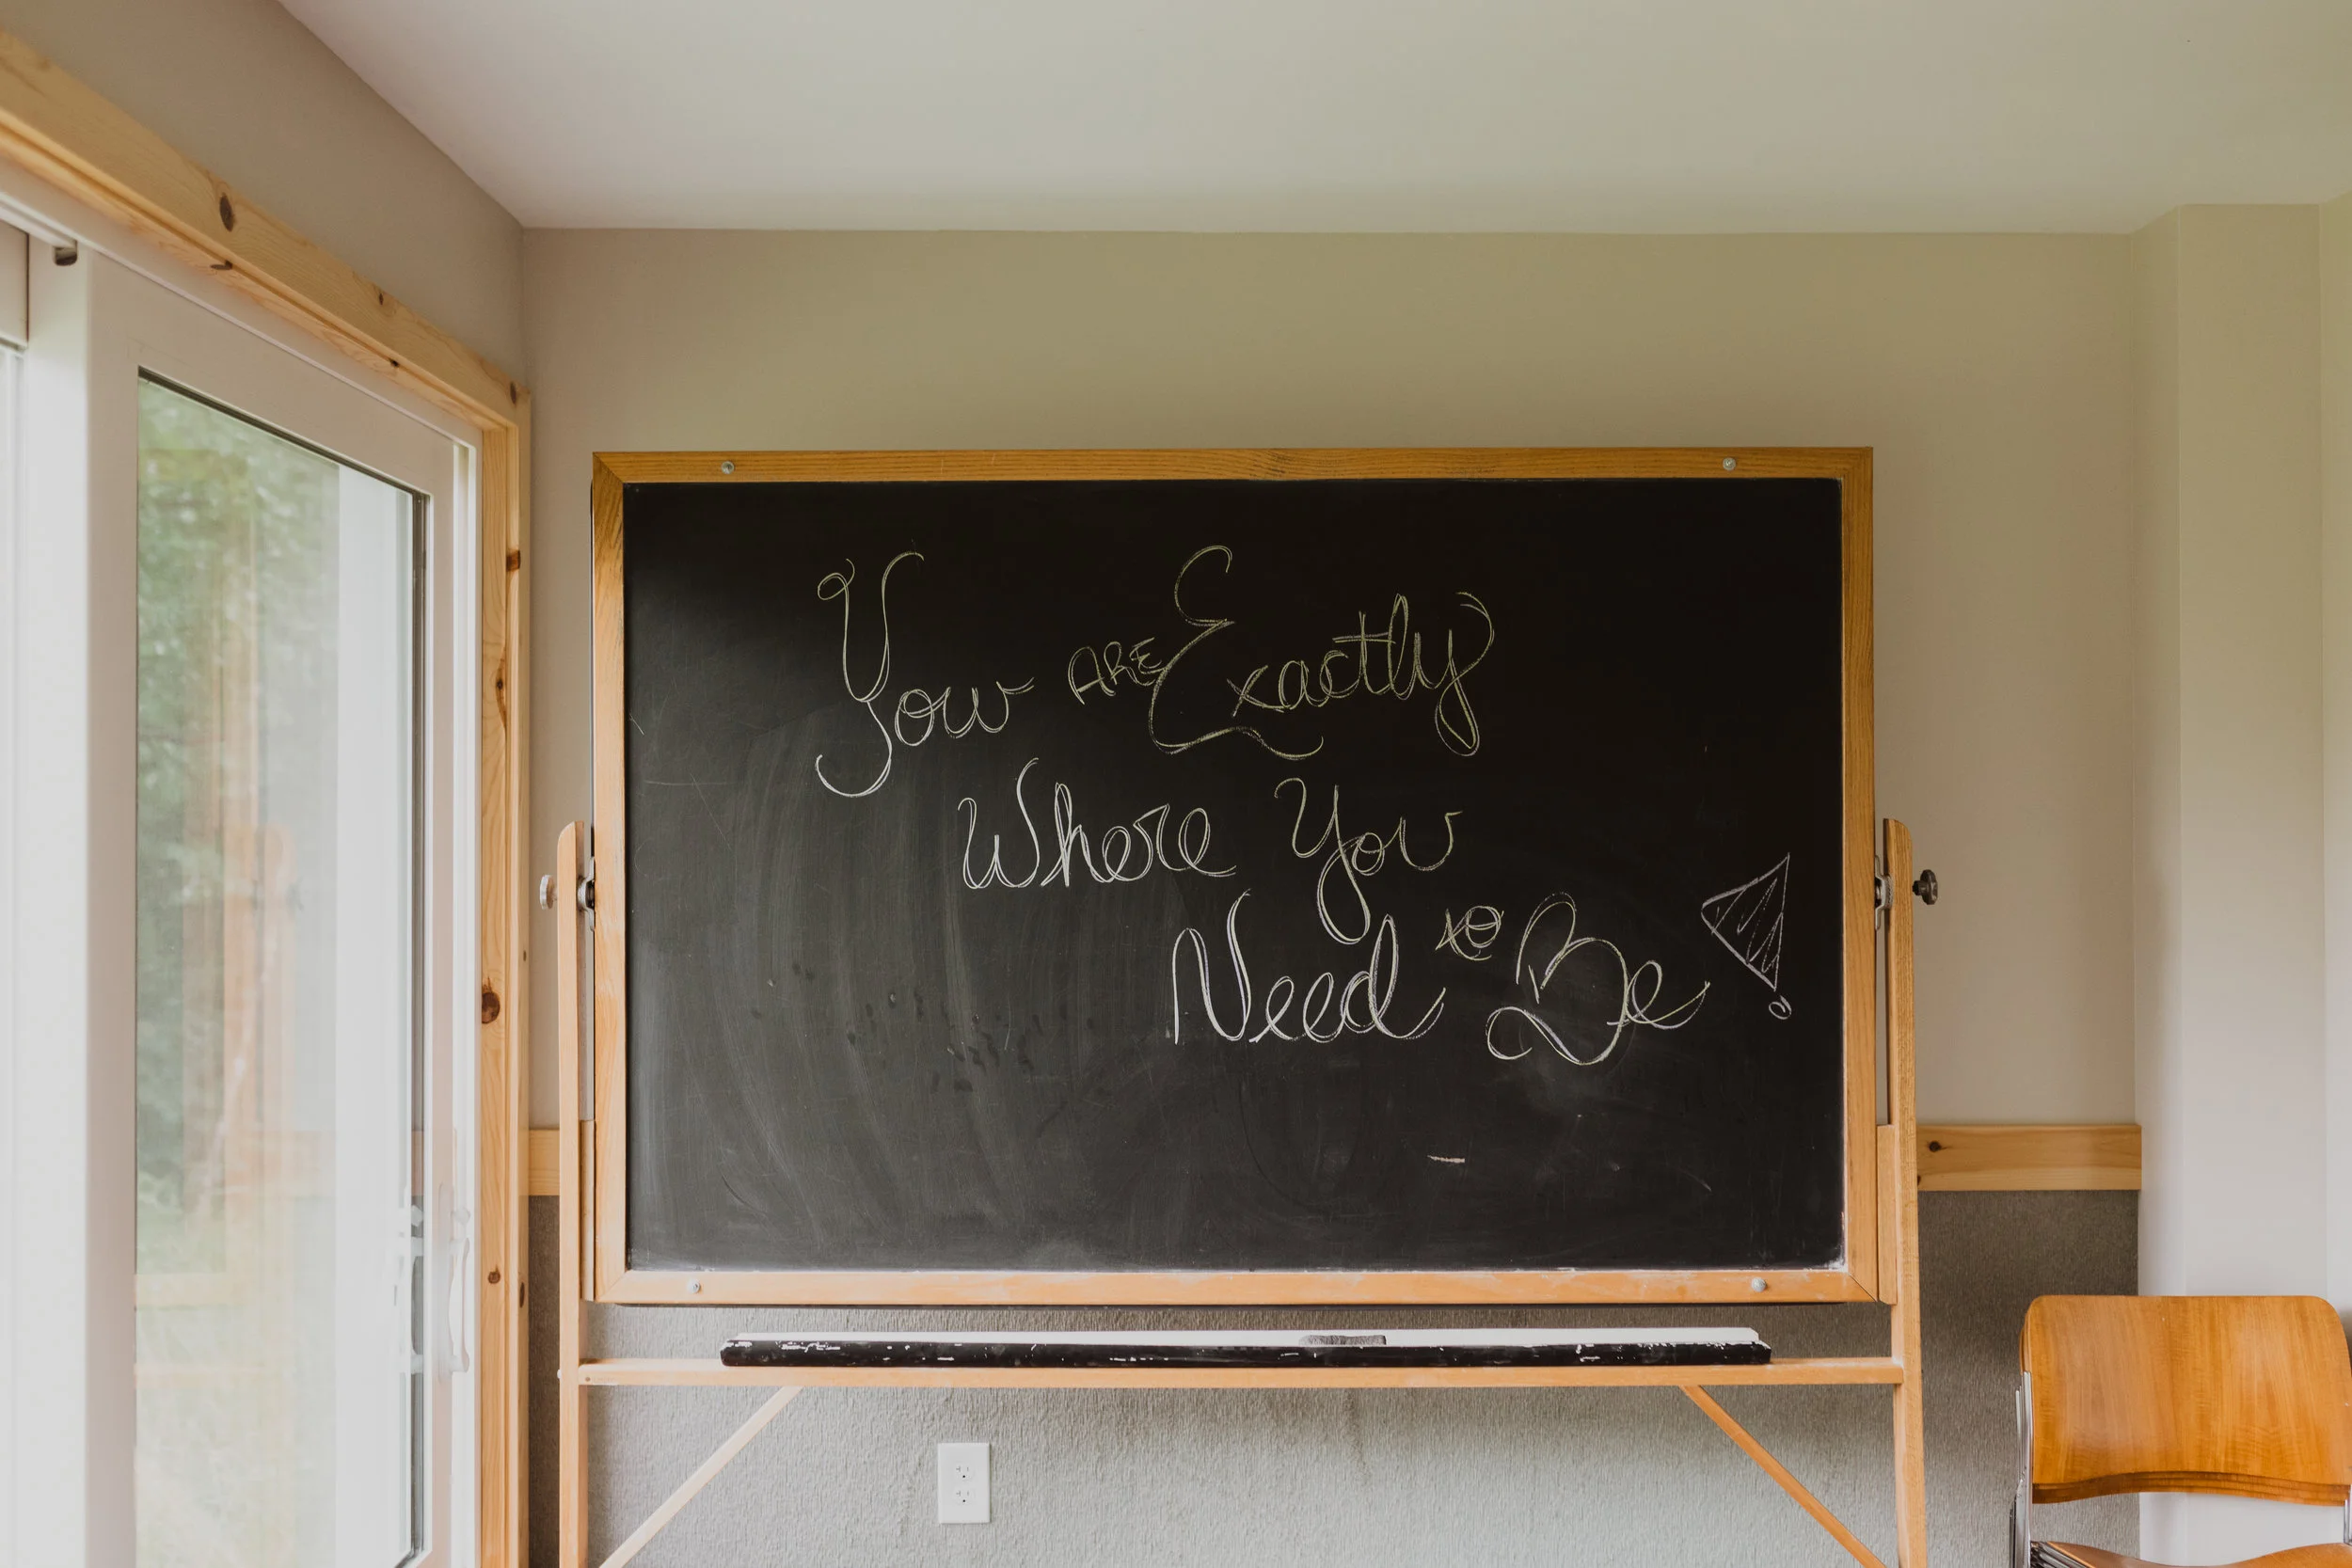 You ARE Exactly
Where You
Need to Be!